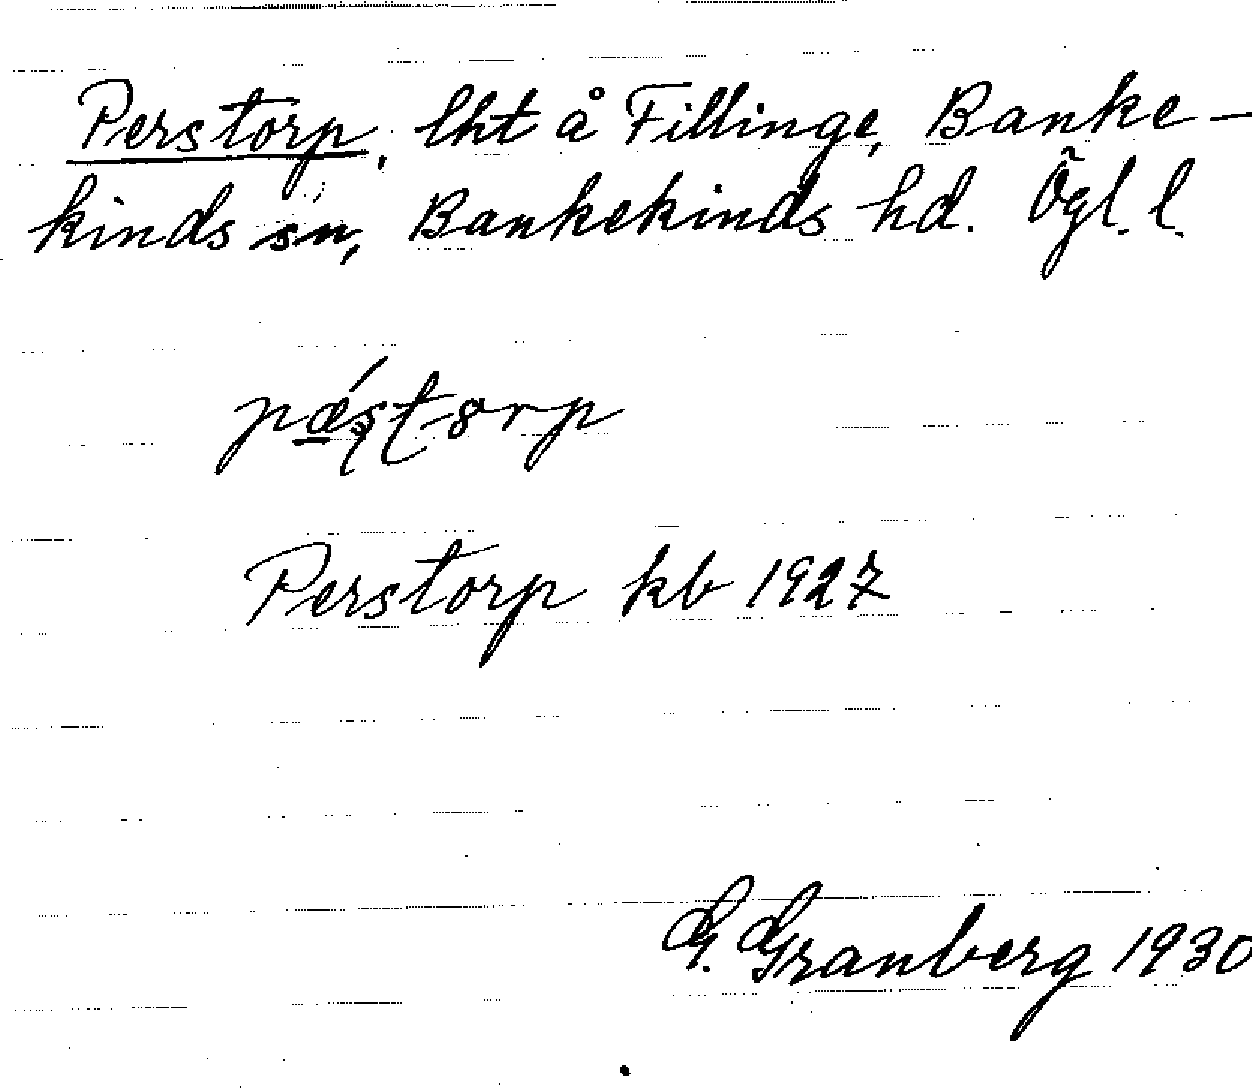 Perstorp, lht å Fillinge, Banke-
kinds sn, Bankekinds hd. Ögl. l.
Perstorp kb 1927
G. Granberg 1930